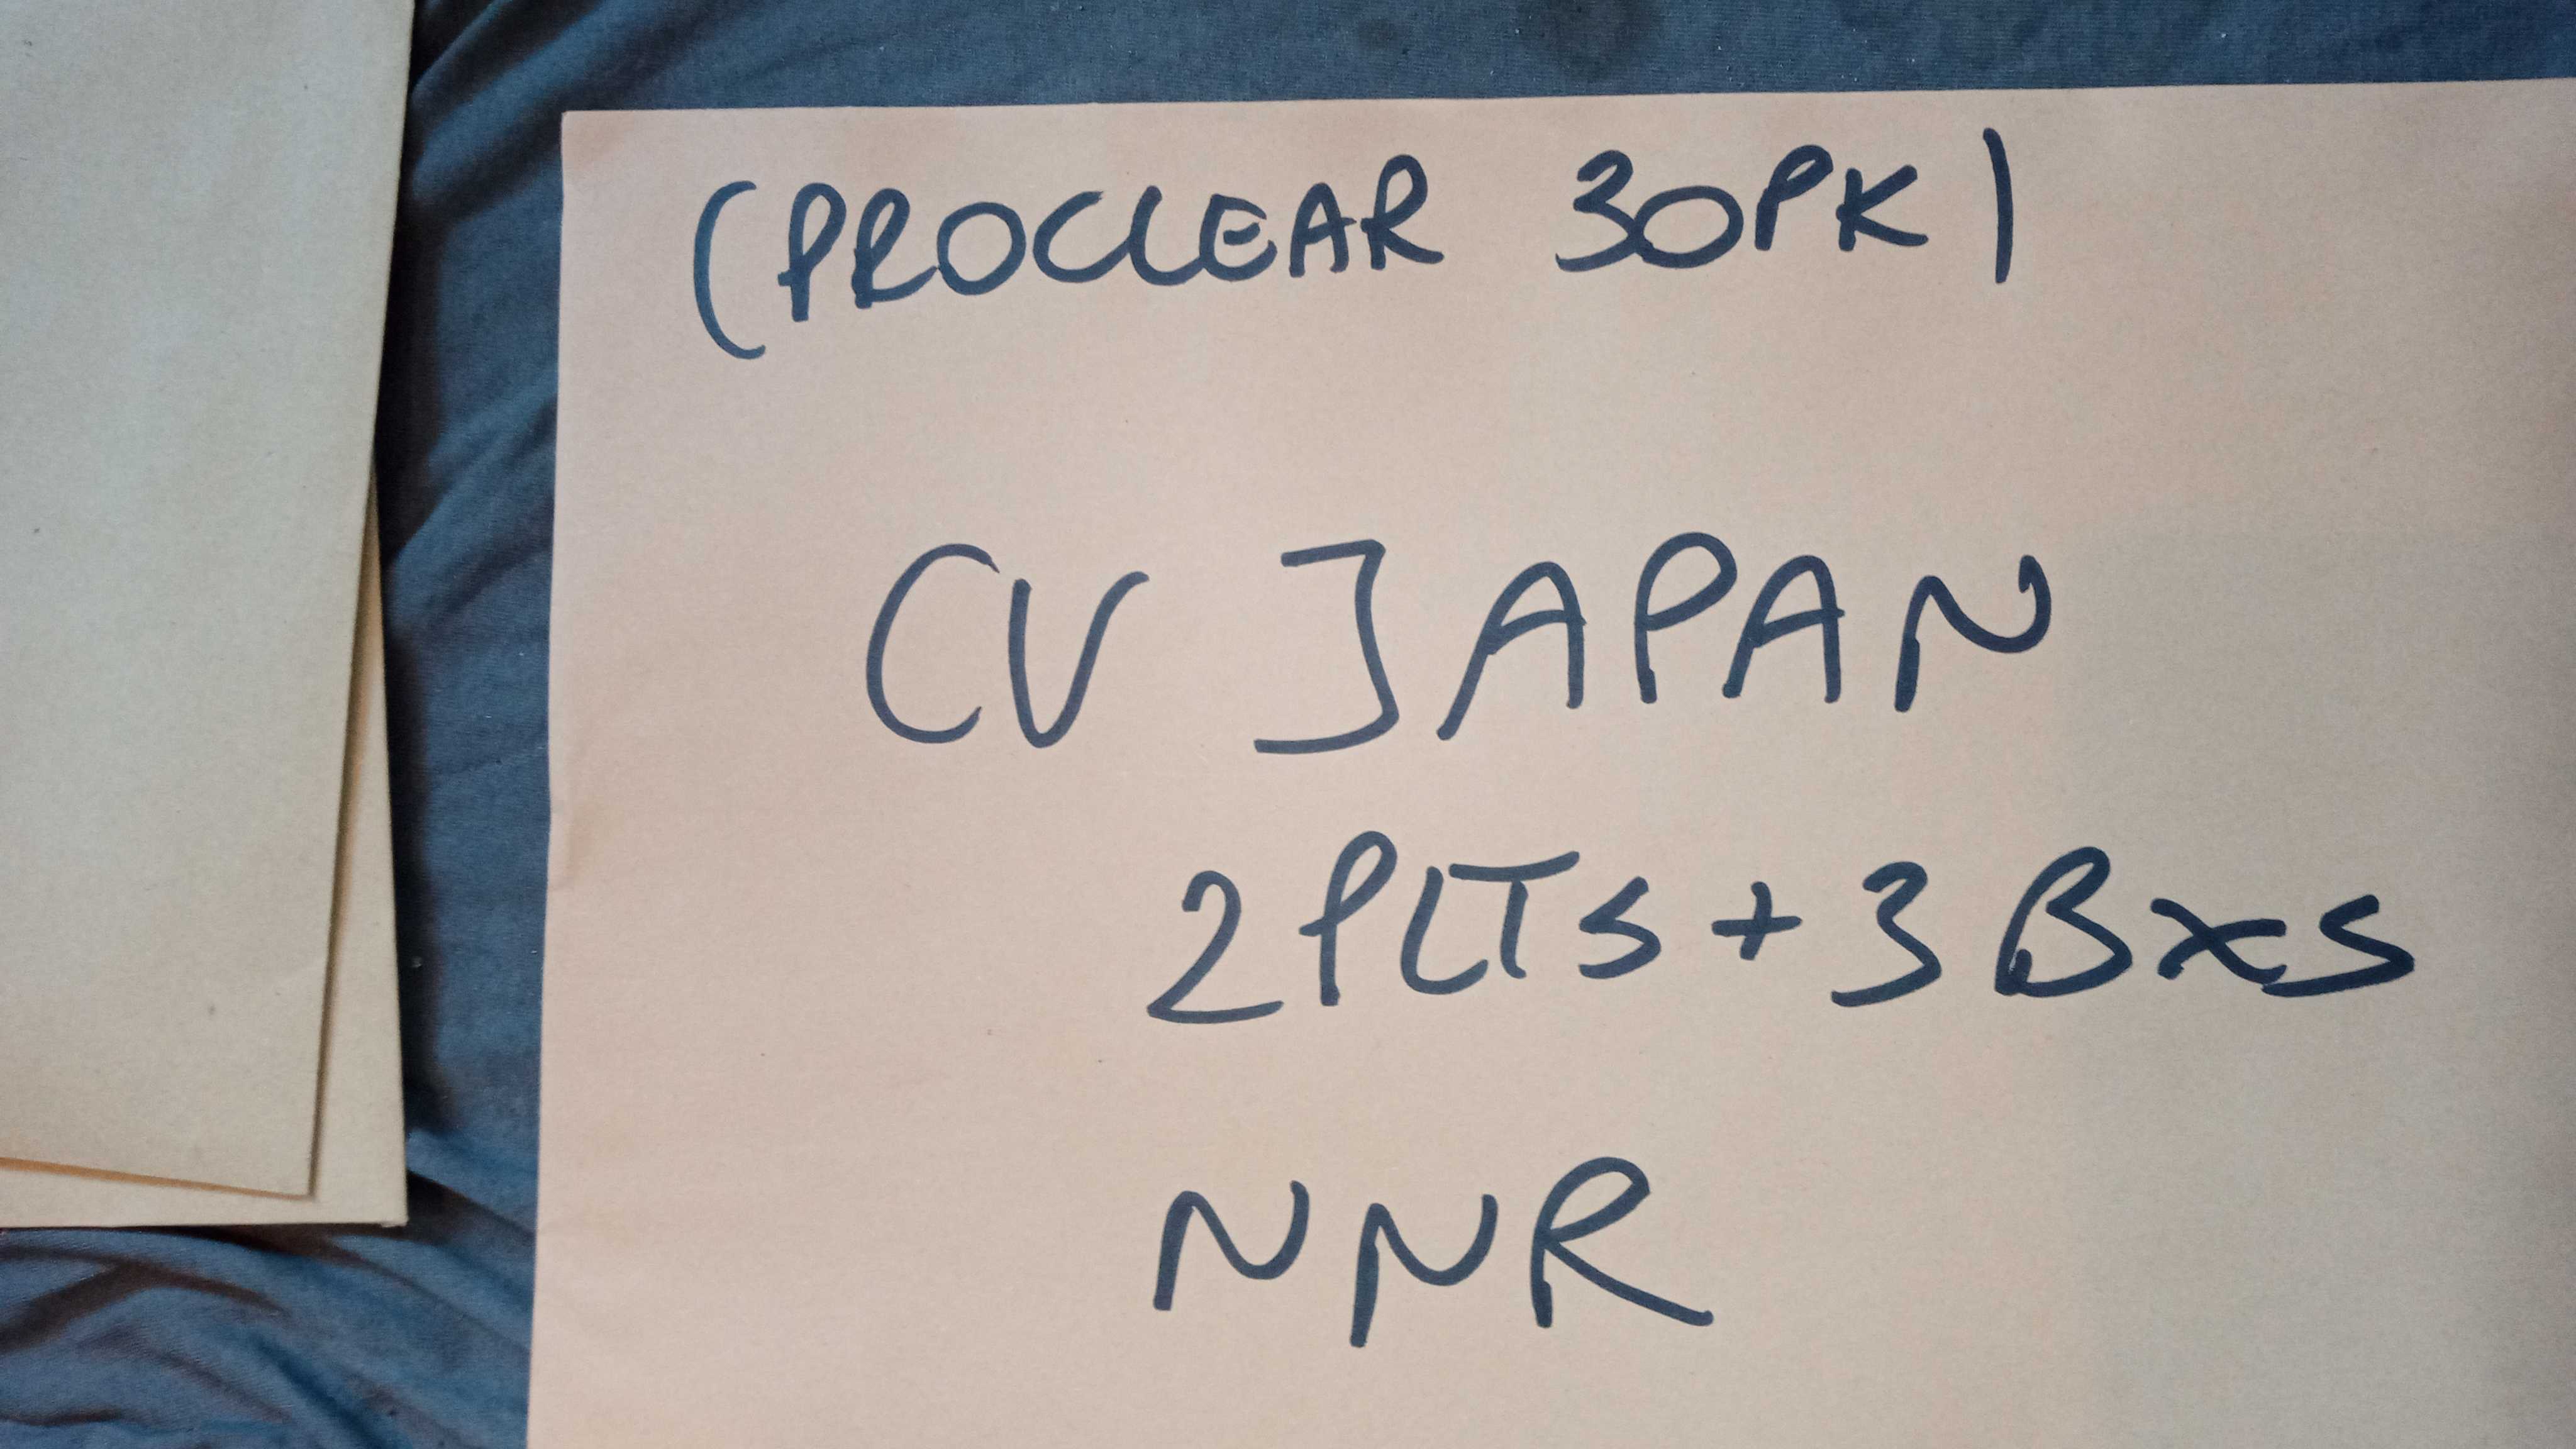 (PROCLEAR 30PK)
CV JAPAN
2PLTS + 3 BXS
NNR